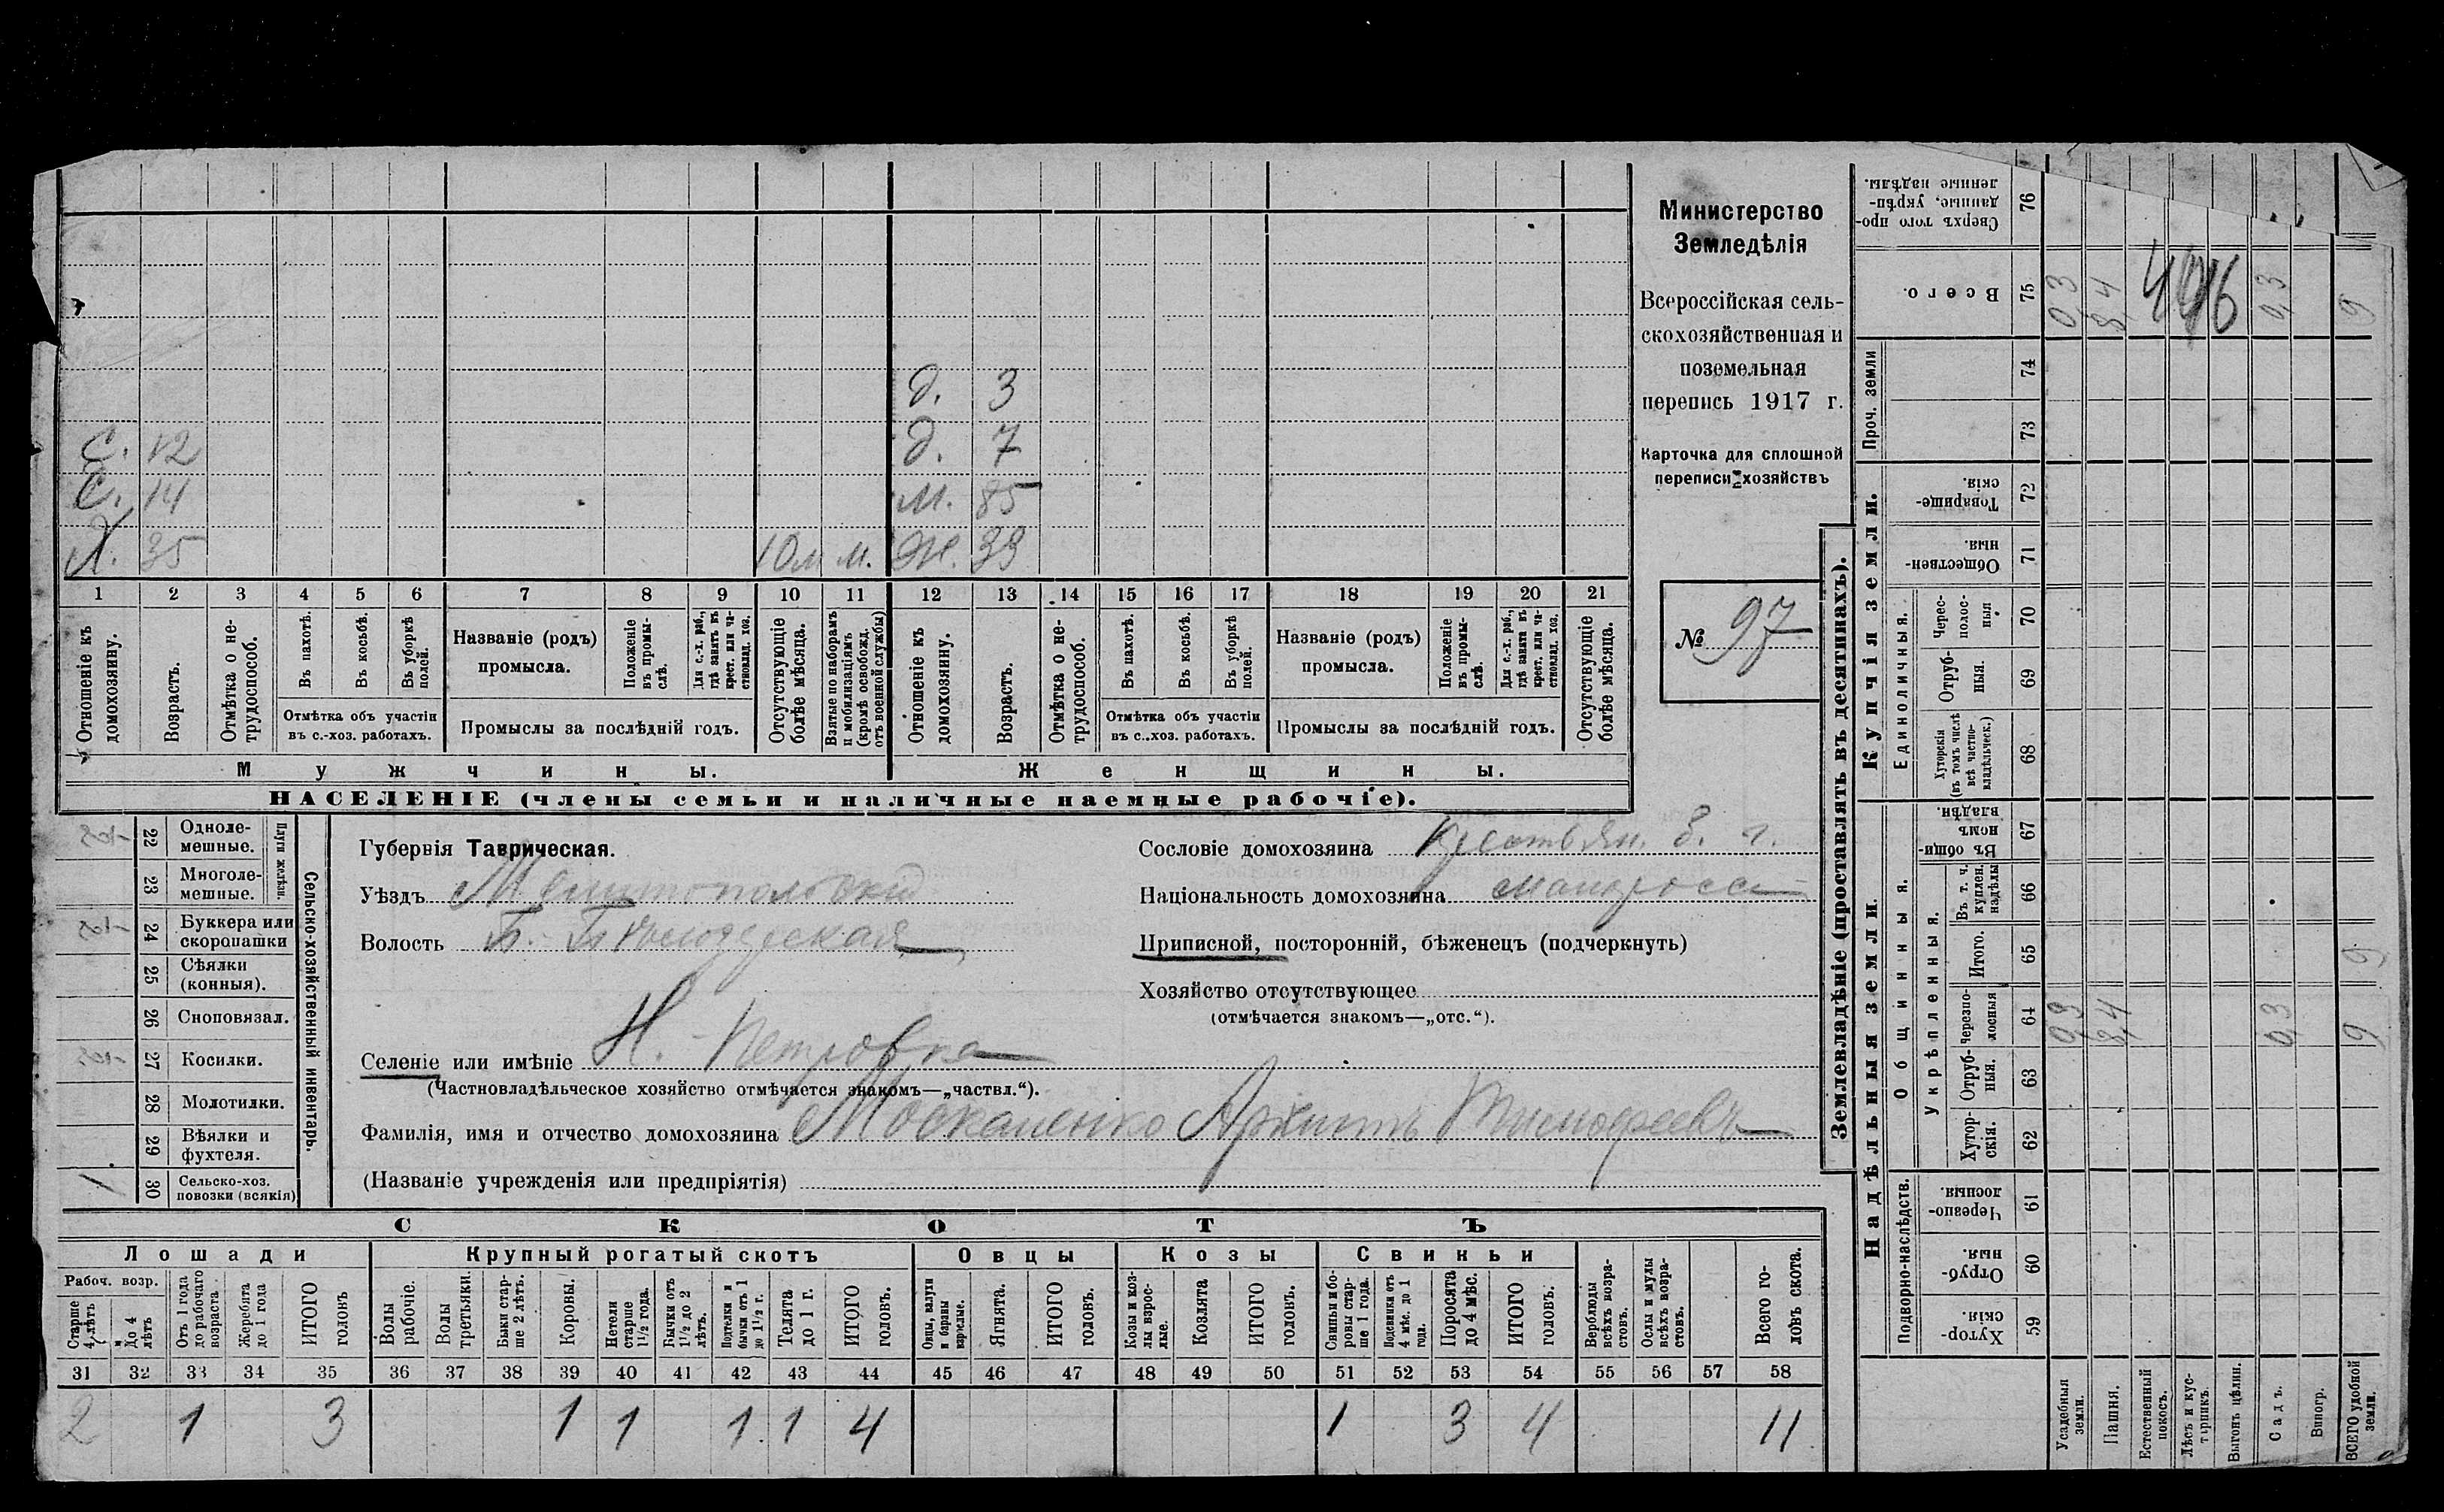 д. 3
С. 12 д. 7
С. 14 м. 85
Х. 35 10 м м. Ж. 39
1 2 3 4 5 6 7 8 9 10 11 12 13 14 15 16 17 18 19 20 21
Отношеніе къ домохозяину.
Возрастъ.
Отмѣтка о нетрудоспособ.
Въ пахотѣ.
Въ косьбѣ.
Въ уборкѣ полей.
Отмѣтка объ участіи въ с.-хоз. работахъ.
Названіе (родъ) промысла.
Положеніе въ промыслѣ.
Для с.-х. раб., гдѣ занятъ въ крест. или частновлад. хоз.
Промыслы за послѣдній годъ.
Отсутствующіе болѣе мѣсяца.
Взятые по наборамъ и мобилизаціямъ (кромѣ освобожд. отъ военной службы)
Отношеніе къ домохозяину.
Возрастъ.
Отмѣтка о нетрудоспособ.
Въ пахотѣ.
Въ косьбѣ.
Въ уборкѣ полей.
Отмѣтка объ участіи въ с.-хоз. работахъ.
Названіе (родъ) промысла.
Положеніе въ промыслѣ.
Для с.-х. раб., гдѣ занята въ крест. или частновлад. хоз.
Промыслы за послѣдній годъ.
Отсутствующіе болѣе мѣсяца.
Мужчины. Женщины.
НАСЕЛЕНІЕ (члены семьи и наличные наемные рабочіе).
Министерство
Земледѣлія
Всероссійская сель-
скохозяйственная и
поземельная
перепись 1917 г.
Карточка для сплошной
переписи хозяйствъ
№ 97
Сельско-хозяйственный инвентарь.
Плуги желѣзн.
22 Одноле-
мешные.
23 Многоле-
мешные.
24 Буккера или
скоропашки
25 Сѣялки
(конныя).
26 Сноповязал.
27 Косилки.
28 Молотилки.
29 Вѣялки и
фухтеля.
1 30 Сельско-хоз.
повозки (всякія)
Губернія Таврическая.
Уѣздъ Мелитопольский
Волость
Селеніе или имѣніе Н.-Петровка
(Частновладѣльческое хозяйство отмѣчается знакомъ—„частвл.“).
Фамилія, имя и отчество домохозяина Москаленко Архипъ Тимофеевъ
(Названіе учрежденія или предпріятія)
Сословіе домохозяина крестьян.
Національность домохозяина малоросс
Приписной, посторонній, бѣженецъ (подчеркнуть)
Хозяйство отсутствующее
(отмѣчается знакомъ—„отс.“).
СКОТЪ
Лошади Крупный рогатый скотъ Овцы Козы Свиньи
Рабоч. возр.
Старше 4 лѣтъ
До 4 лѣтъ
Отъ 1 года до рабочаго возраста
Жеребята до 1 года
ИТОГО головъ
Волы рабочіе.
Волы третьяки.
Быки старше 2 лѣтъ.
Коровы.
Нетели старше 1½ года.
Бычки отъ 1½ до 2 лѣтъ.
Подтелки и бычки отъ 1 до 1½ г.
Телята до 1 г.
ИТОГО головъ.
Овцы, валухи и бараны взрослые.
Ягнята.
ИТОГО головъ.
Козы и козлы взрослые.
Козлята
ИТОГО головъ.
Свиньи и боровы старше 1 года.
Подсвинки отъ 4 мѣс. до 1 года.
Поросята до 4 мѣс.
ИТОГО головъ.
Верблюды всѣхъ возрастовъ.
Ослы и мулы всѣхъ возрастовъ.
Всего головъ скота.
31 32 33 34 35 36 37 38 39 40 41 42 43 44 45 46 47 48 49 50 51 52 53 54 55 56 57 58
2 1 3 1 1 1 1 4 1 3 4 11
Землевладѣніе (проставлять въ десятинахъ).
Сверхъ того проданные, укрѣпленные надѣлы. 76
Всего. 75 0,3 8,4 496 0,3 9
Проч. земли 74
73
Купчія земли.
Товарищескія. 72
Общественныя. 71
Единоличныя.
Чересполосныя 70
Отрубныя. 69
Хуторскія (въ томъ числѣ всѣ частновладѣльческ.) 68
Надѣльныя земли.
Общинныя.
Въ общинномъ владѣн. 67
Укрѣпленныя.
Въ т. ч. куплен. надѣлы 66
Итого. 65 9
Черезполосныя 64 0,3 8,4 0,3 9
Отрубныя. 63
Хуторскія. 62
Подворно-наслѣдств.
Черезполосныя. 61
Отрубныя. 60
Хуторскія. 59
Усадебныя земли.
Пашня.
Естественный покосъ.
Лѣсъ и кустарникъ.
Выгонъ цѣлин.
Садъ.
Виногр.
ВСЕГО удобной земли.